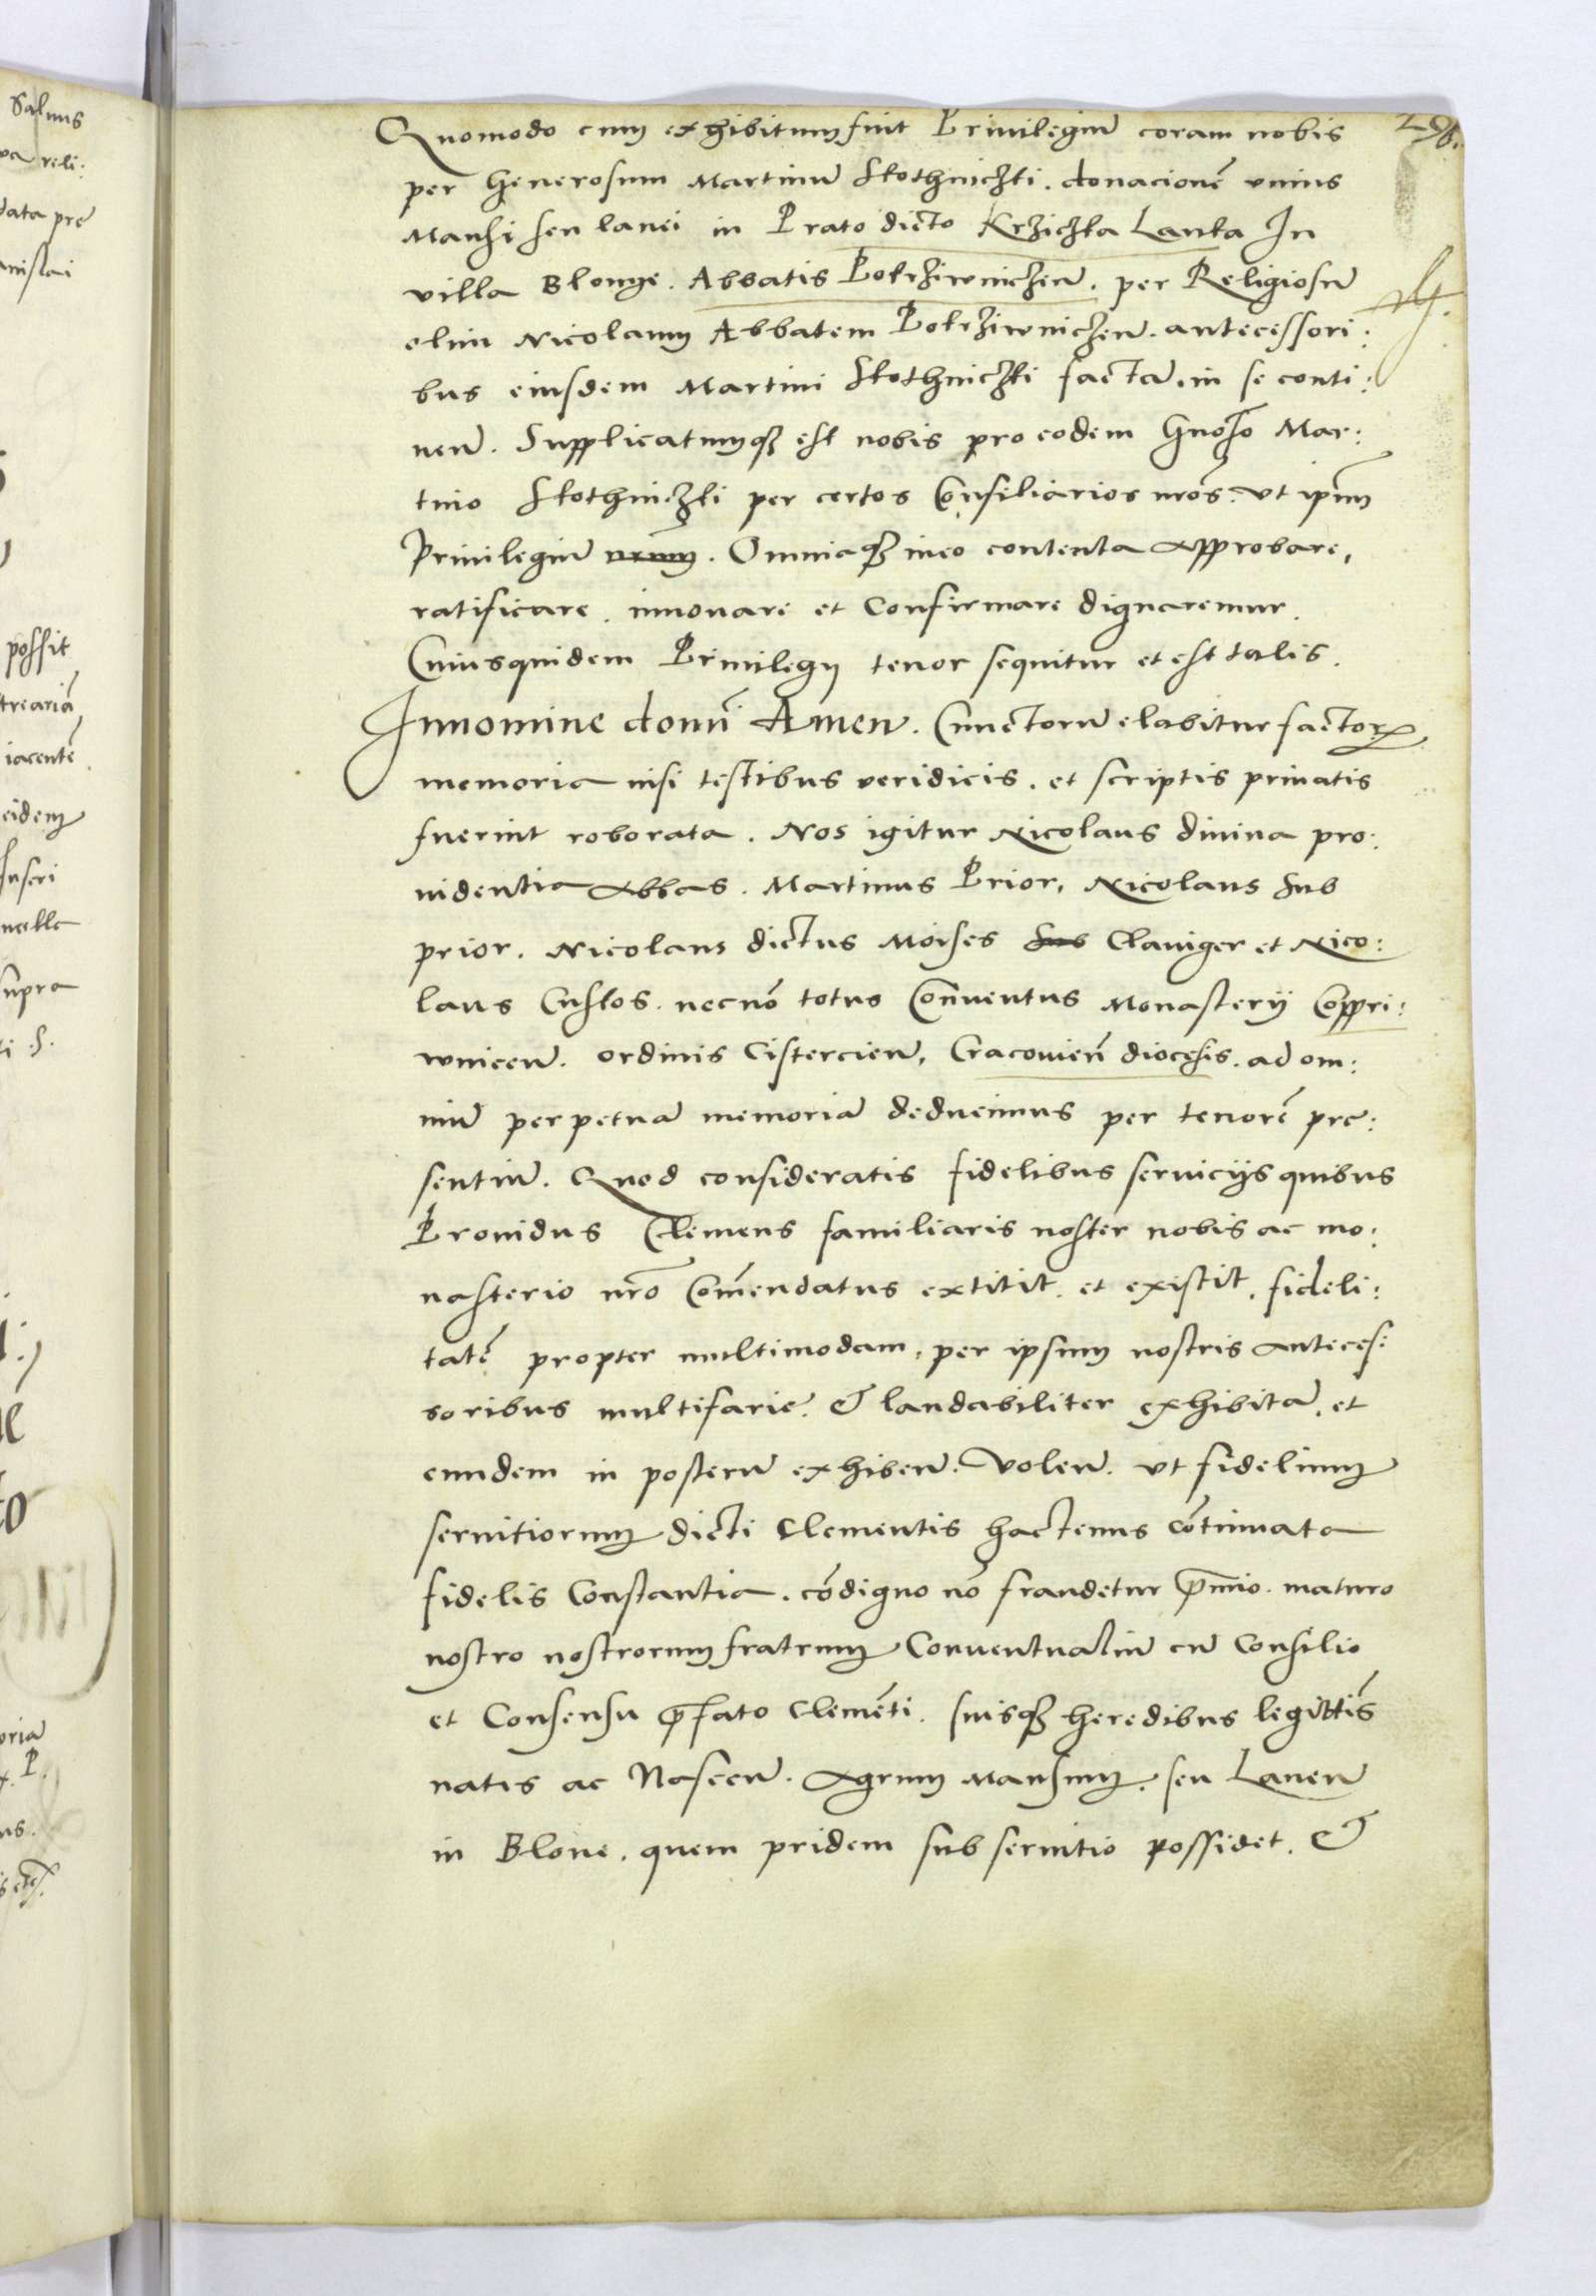 Quomodo cum exhibitum fuit Privilegiũ coram nobis
per Generosum Martinũ Slothniczki. donacionẽ vnius
Mansi seu lanei in Prato dicto Krzichka Lanka In
villa Blonge. Abbatis Pokrziwniczeñ. per Religiosũ
olim Nicolaum Abbatem Pokrziwniczeñ. antecessori:
bus eiusdem Martini Slothniczki factã. in se conti:
neñ. Supplicatumq3 est nobis pro eodem Gnoso Mar:
tino Slothniczki per certos Consiliarios nros. vt ipm̃
Privilegiũ. Omniaq3 in eo contenta approbare,
ratificare. innouare et Confirmare dignaremur.
Cuiusquidem Privilegij tenor sequitur et est talis.
In nomine domĩ Amen. Cunctorũ elabitur factorꝝ
memoria nisi testibus veridicis. et scriptis privatis
fuerint roborata. Nos igitur Nicolaus diuina pro:
uidentia Abbas. Martinus Prior, Nicolaus sub
prior. Nicolaus dictus Moises Claviger et Nico:
laus Custos. necnõ totus Conventus Monasterij Coppri:
wniceñ. ordinis Cistercieñ, Cracovieñ diocesis. ad om:
niũ perpetuã memoriã deducimus per tenorẽ pre:
sentiũ. Quod consideratis fidelibus seruicijs quibus
Prouidus Clemens familiaris noster nobis ac mo:
nasterio nrõ Com̃endatus extitit. et existit. fideli:
tatẽ propter multimodam, per ipsum nostris anteces:
soribus multifarie. & laudabiliter exhibitã. et
eundem in posterũ exhibeñ. Voleñ. vt fidelium
seruitiorum dicti Clementis hactenus cõtinuata
fidelis Constantia. cõdigno nõ fraudetur p̃mio. maturo
nostro nostrorum fratrum Conventualiũ cũ Consilio
et Consensu p̃fato Clemẽti. suisq3 heredibus legittĩs
natis ac Nasceñ. Agrum Mansum. seu Laneũ
in Blone. quem pridem sub seruitio possidet. &